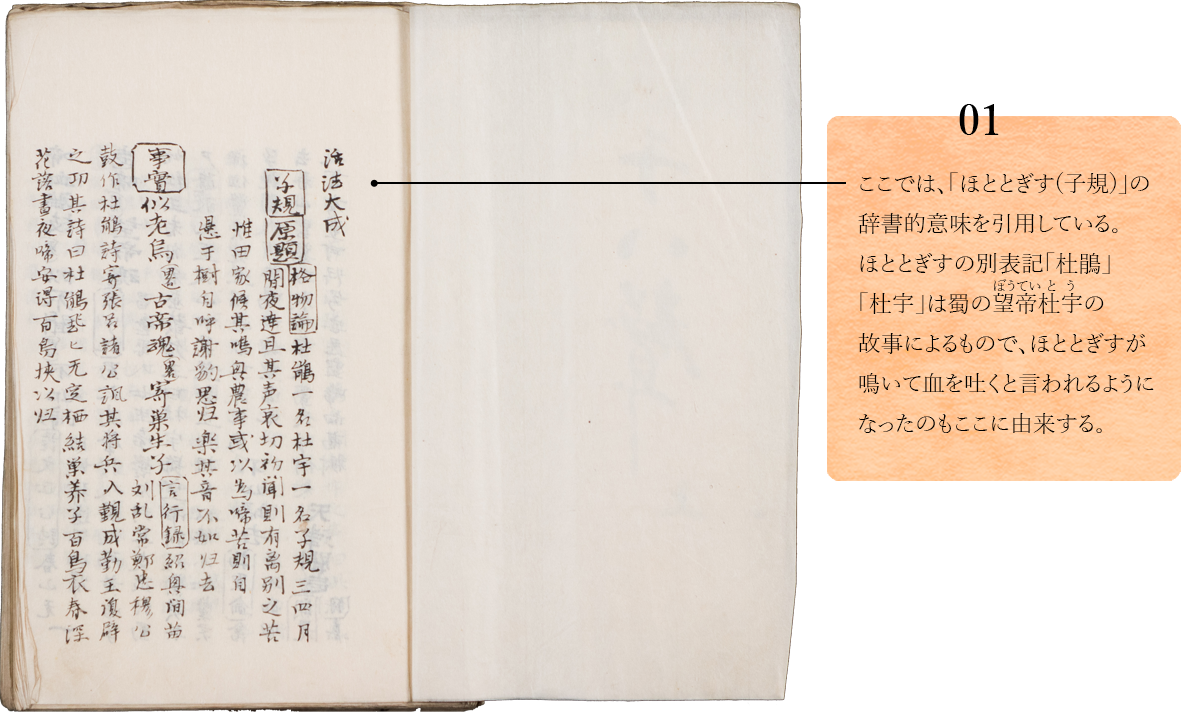 活法大成
子規 原題 格物論 杜鵑一名杜宇一名子規三四月
間夜達旦其声哀切初聞則有离别之苦
惟田家候其鳴興農事或以為啼苦則自
懸于樹自呼謝豹思归樂其音不如归去
事實 似老烏 畧 古帝魂 畧 寄巣生子 言行録 紹興間苗
刘乱常鄭忠穆公
鼓作杜鵑詩寄張呂諸公諷其将兵入覲成勤王復辟
之功其詩曰杜鵑飛飛无定栖結巣养子百鳥衣春深
花落晝夜啼安得百鳥挾以归
01
ここでは、「ほととぎす(子規)」の
辞書的意味を引用している。
ほととぎすの別表記「杜鵑」
「杜宇」は蜀の望帝杜宇の
ぼうていとう
故事によるもので、ほととぎすが
鳴いて血を吐くと言われるように
なったのもここに由来する。